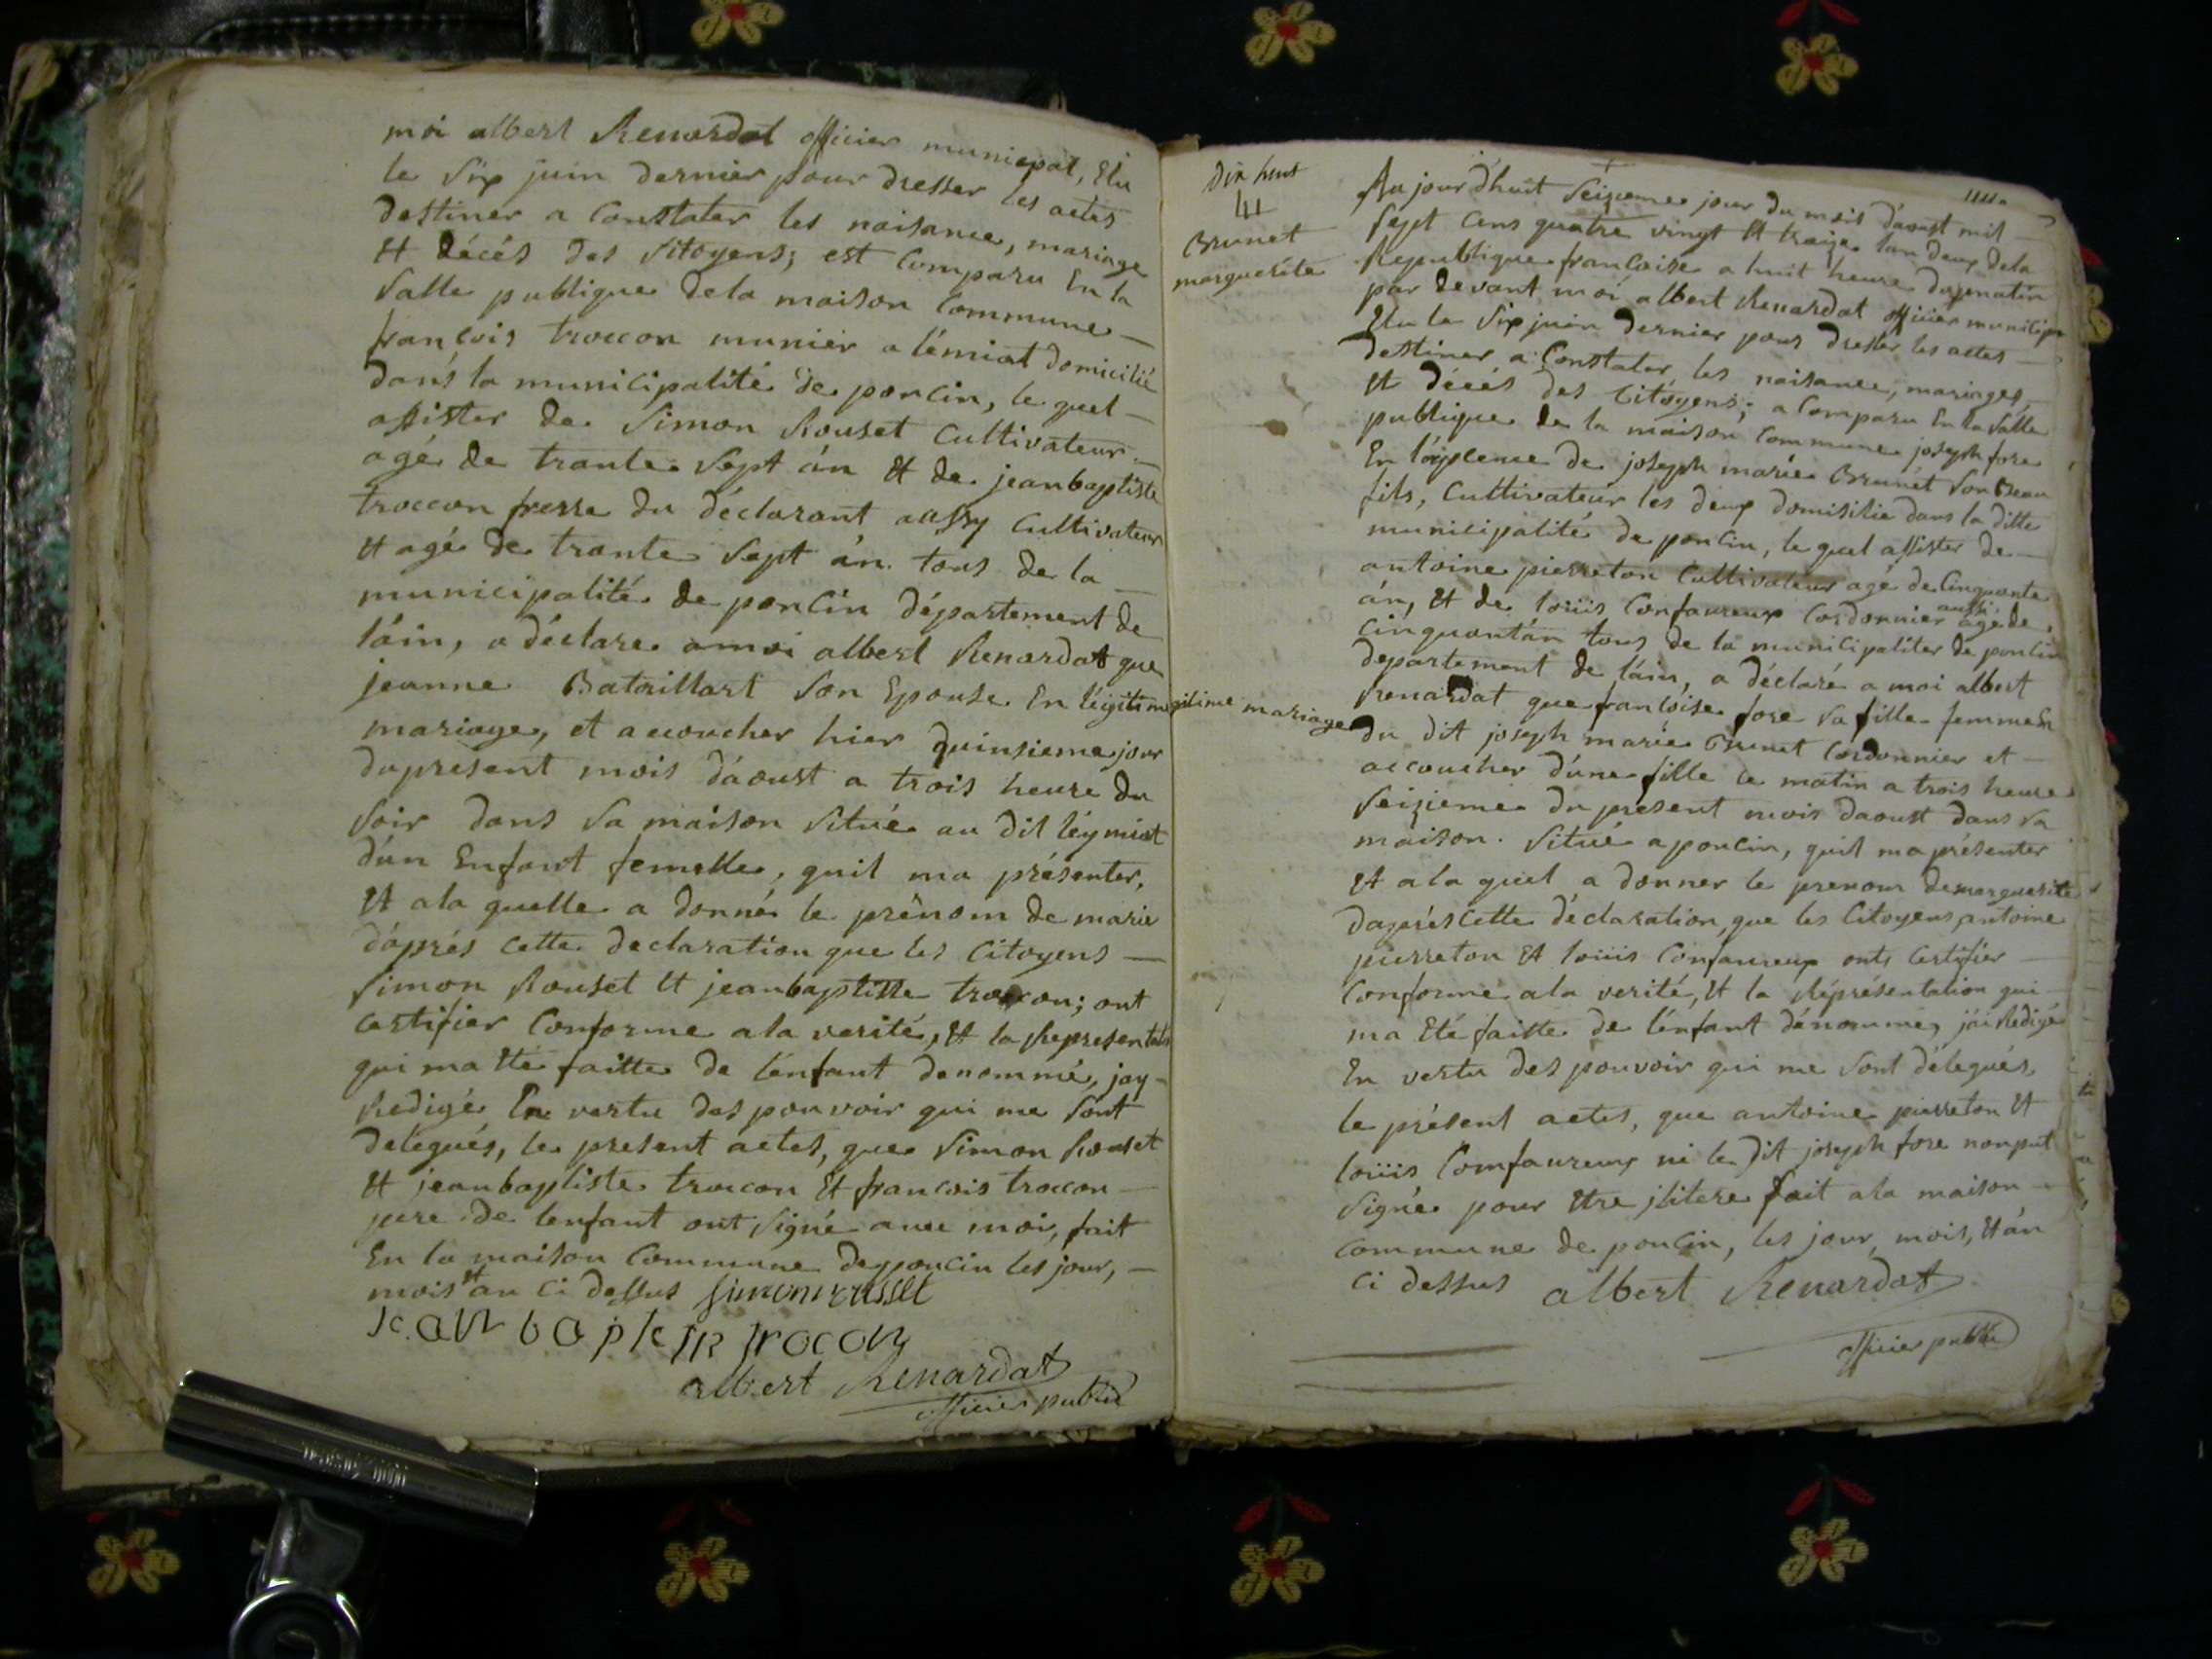 moi albert Renardat officier municipal, Elu
le six juin dernier pour dresser les actes
destiner a Constater les naisance, mariage
Et décés des Sitoyens; est Comparu En la
Salle publique dela maison Commune —
francois troccon munier a lémiat domicilié
dans la municipalité de poncin, le quel —
assister de Simon Rouset Cultivateur —
agé de trante Sept án Et de jeanbaptiste
troccon frerre du déclarant aussy Cultivateur
Et agé de trante Sept án tous de la —
municipalité de poncin département de
láin, a déclare amoi albert Renardat que
jeanne Bataillart Son Epouse En légitime
mariage, et accoucher hier quinsieme jour
dupresent mois dáoust a trois heure du
Soir dans Sa maison Situé au dit léymiat
dún Enfant femelle, quil ma présenter,
Et ala quelle a donné le prénom de marie
dáprés cette declaration que les Citoyens —
Simon Rouset Et jeanbaptiste troccon; ont
certifier Conforme ala verité, Et la Representation
qui ma Eté faitte de lénfant denommé, jay
Redigé En vertu des pouvoir qui me Sont
delegués, le present actes, que Simon Rouset
Et jeanbaptiste troccon Et francois troccon —
pere de lenfant ont Signé avec moi, fait
En la maison Commune de poncin les jour, —
mois Et an Ci dessus Simon rousset
jean baptiste trocon
albert Renardat
officier public
Dix huit
Brunet
marguerite
Aujourdhuit Seizieme jour du mois dáoust mil —
Sept Cens quatre vingt Et traize lan deux dela
Republique francaise a huit heure dumatin
par devant moi albert Renardat officier municipa
Elu le Six juin dernier pour dresser les actes —
destiner a Constater les naisance, mariages,
Et décés des Citóyens; a Comparu En la Salle
publique de la maison Commune joseph fore
En lápsence de joseph marie Brunét Son Beau
fils, Cultivateur les deux domisilie dans la ditte
municipalité de poncin, le quel assister de —
antoine pierreton Cultivateur agé de Cinquante
án, Et de loüis Confaureux Cordonnier aussi agé de
cinquantán tous de la municipaliter de poncin
departement de láin, a déclaré a moi albert
Renardat que francoise fore Sa fille femme En
légitime mariage du dit joseph marie Brunet Cordonnier et —
accoucher dúne fille ce matin a trois heure
Seizieme du présent mois daoust dans Sa
maison Situé a poncin, quil ma présenter
Et ala quel a donner le prenom de marguerite
daprés Cette déclaration, que les Citoyens antoine
pierreton Et loüis Confaureux onts Certifier —
Conforme ala verité, Et la Répresentation qui —
ma Eté faitte de lénfant dénommé, jái Redigé
En vertu des pouvoir qui me Sont délegués,
le présent actes, que antoine pierreton Et
loüis Comfaureux ni le dit joseph fore nonput
Signé pour Etre jlitere fait ala maison —
Commune de poncin, les jour, mois, Et án
Ci dessus albert Renardat
officier public